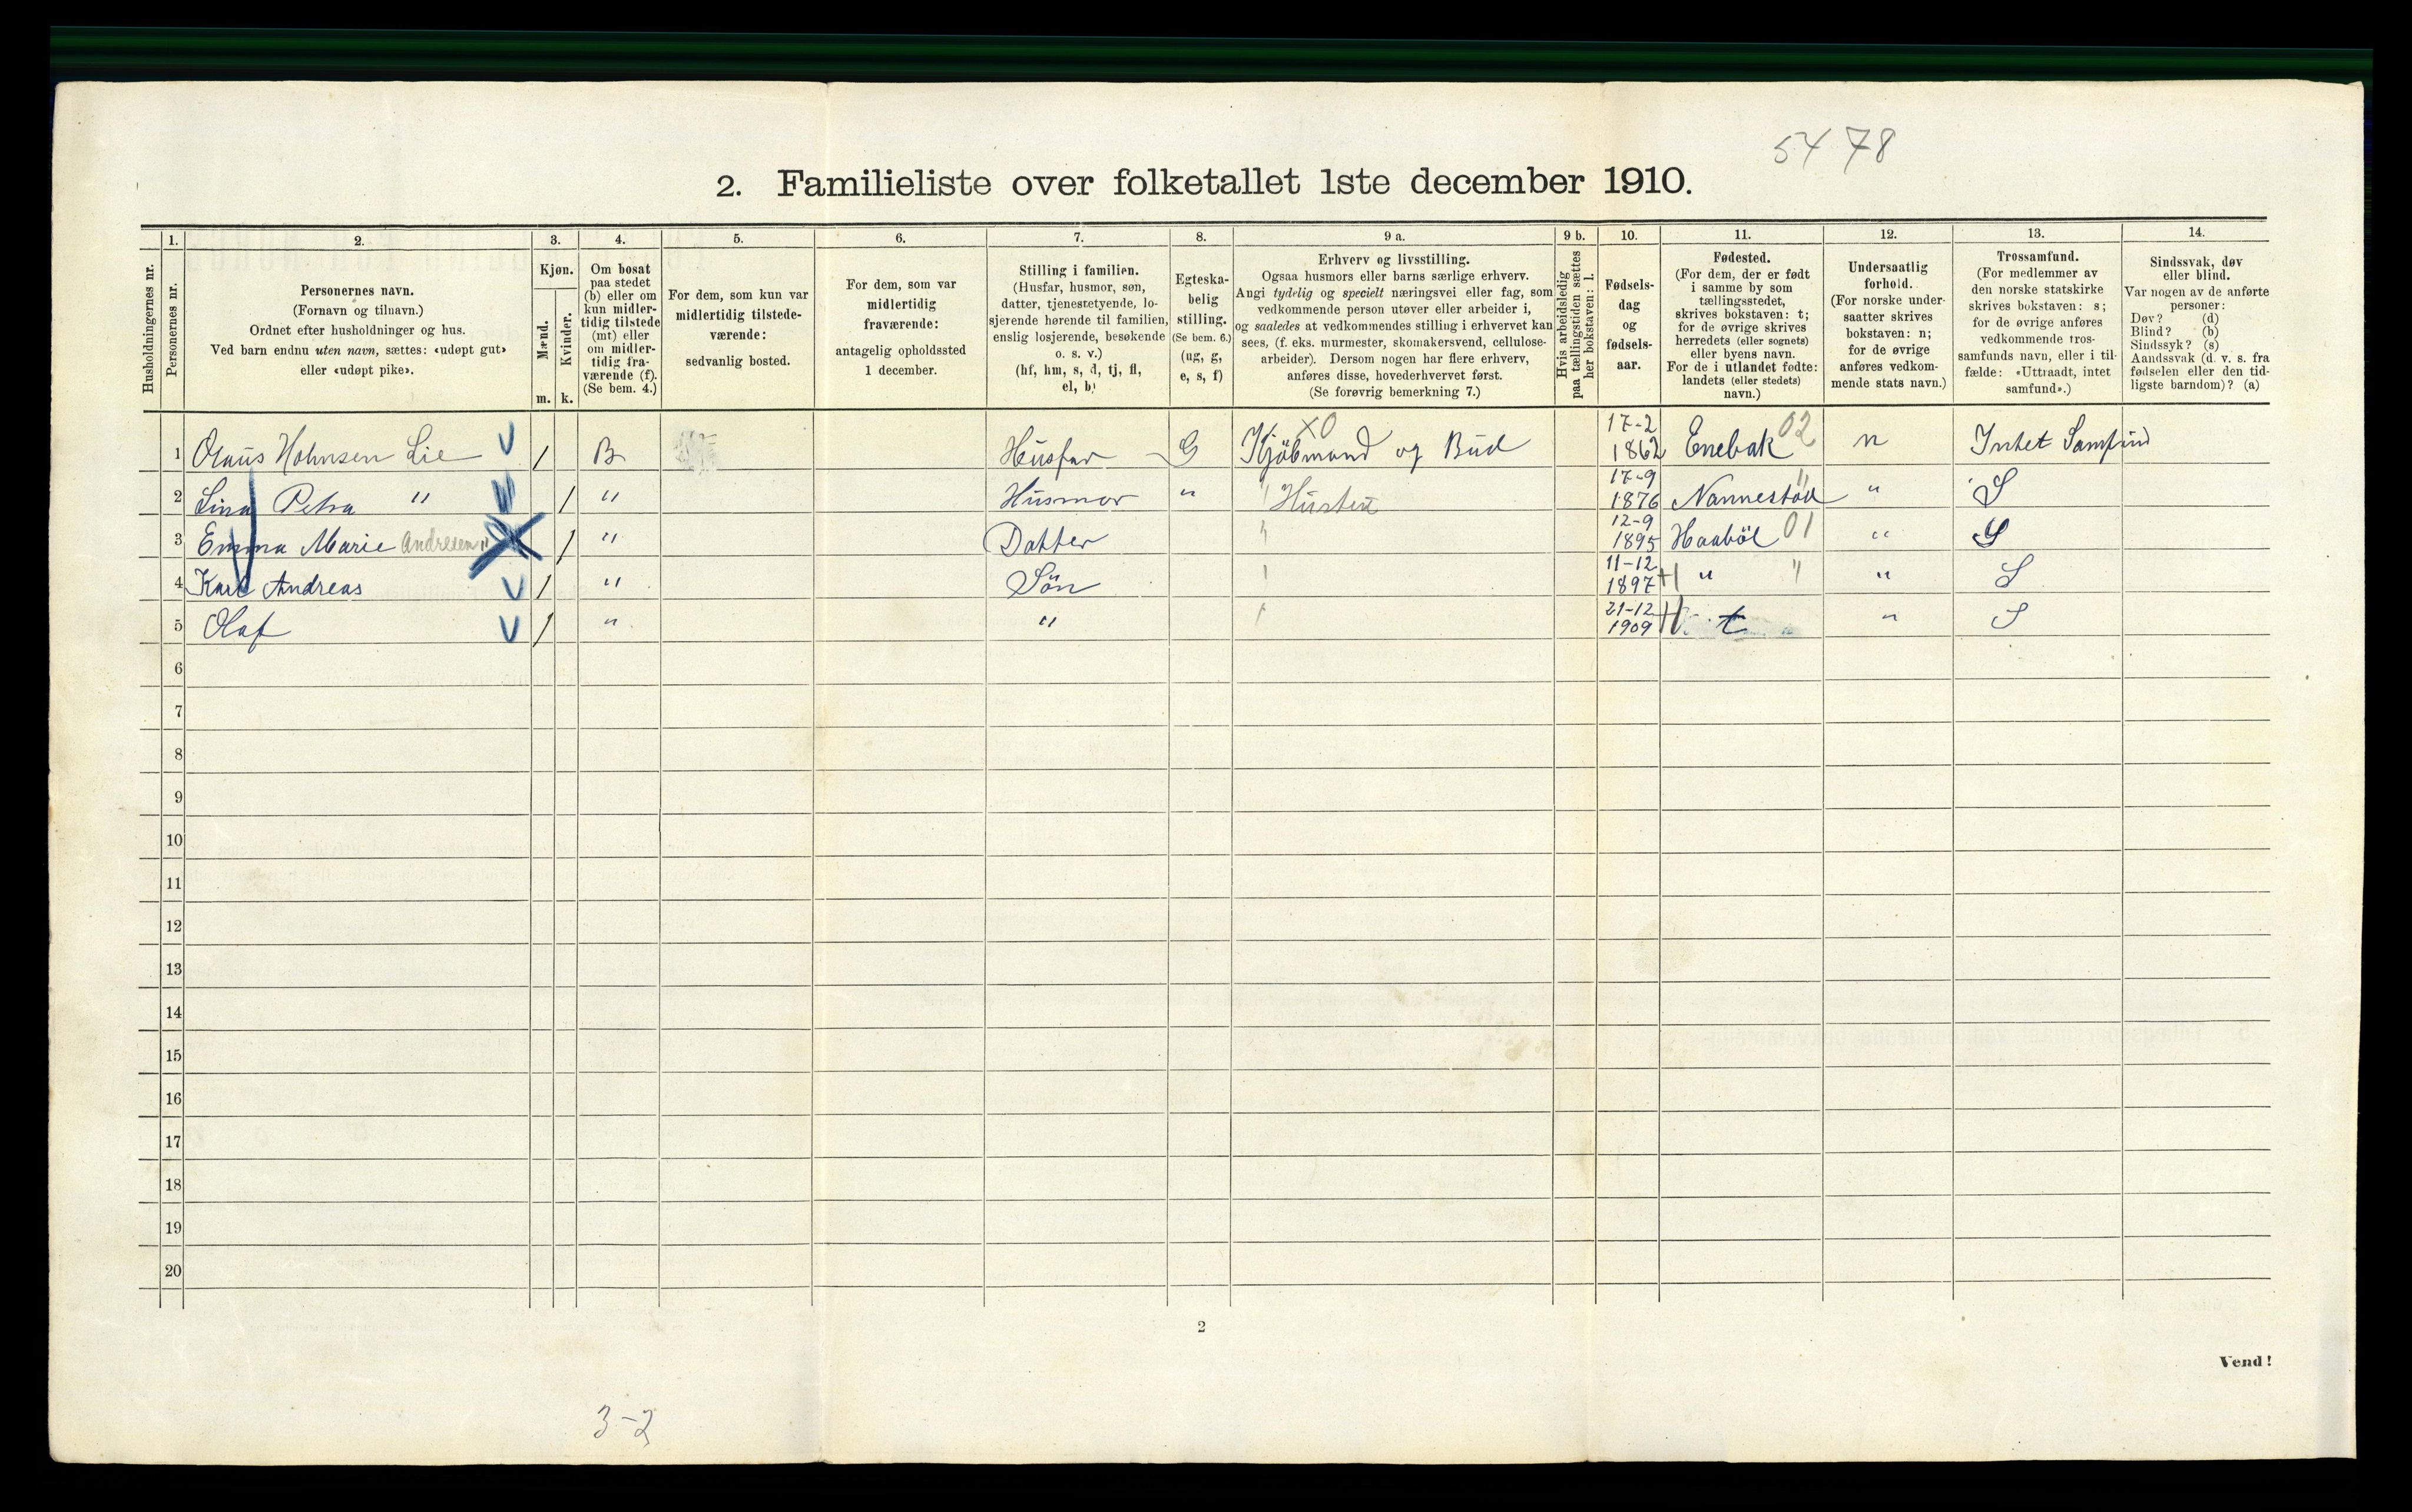 54 78
2. Familieliste over folketallet 1ste december 1910.
Husholdningernes nr.
1.
Personernes nr.
2.
Personernes navn.
(Fornavn og tilnavn.)
Ordnet efter husholdninger og hus.
Ved barn endnu uten navn, sættes: «udøpt gut»
eller «udøpt pike».
3.
Kjøn.
Mænd.
Kvinder.
m. k.
4.
Om bosat
paa stedet
(b) eller om
kun midler-
tidig tilstede
(mt) eller
om midler-
tidig fra-
værende (f).
(Se bem. 4.)
5.
For dem, som kun var
midlertidig tilstede-
værende:
sedvanlig bosted.
6.
For dem, som var
midlertidig
fraværende:
antagelig opholdssted
1 december.
7.
Stilling i familien.
(Husfar, husmor, søn,
datter, tjenestetyende, lo-
sjerende hørende til familien,
enslig losjerende, besøkende
o. s. v.)
(hf, hm, s, d, tj, fl,
el, b)
8.
Egteska-
belig
stilling.
(Se bem. 6.)
(ug, g,
e, s, f)
9 a.
Erhverv og livsstilling.
Ogsaa husmors eller barns særlige erhverv.
Angi tydelig og specielt næringsvei eller fag, som
vedkommende person utøver eller arbeider i,
og saaledes at vedkommendes stilling i erhvervet kan
sees, (f. eks. murmester, skomakersvend, cellulose-
arbeider). Dersom nogen har flere erhverv,
anføres disse, hovederhvervet først.
(Se forøvrig bemerkning 7.)
9 b.
Hvis arbeidsledig
paa tællingstiden sættes
her bokstaven: l.
10.
Fødsels-
dag
og
fødsels-
aar.
11.
Fødested.
(For dem, der er født
i samme by som
tællingsstedet,
skrives bokstaven: t;
for de øvrige skrives
herredets (eller sognets)
eller byens navn.
For de i utlandet fødte:
landets (eller stedets)
navn.)
12.
Undersaatlig
forhold.
(For norske under-
saatter skrives
bokstaven: n;
for de øvrige
anføres vedkom-
mende stats navn.)
13.
Trossamfund.
(For medlemmer av
den norske statskirke
skrives bokstaven: s;
for de øvrige anføres
vedkommende tros-
samfunds navn, eller i til-
fælde: «Uttraadt, intet
samfund».)
14.
Sindssvak, døv
eller blind.
Var nogen av de anførte
personer:
Døv? (d)
Blind? (b)
Sindssyk? (s)
Aandssvak (d. v. s. fra
fødselen eller den tid-
ligste barndom)? (a)
1 Olaus Hohnsen Lie 1 B Husfar G Kjöbmand og Bud XO 17-2 1862 Enebak 02 n Intet Samfund
2 Lina Petra " 1 " Husmor " Hustru 17-9 1876 Nannestad " " S
3 Emma Marie Andresen " 1 " Datter 12-9 1895 Haaböl 01 " S
4 Karl Andreas 1 " Sön 11-12 1897 " " " S
5 Olaf 1 " " 21-12 1909 t " S
6
7
8
9
10
11
12
13
14
15
16
17
18
19
20
2
Vend!
3-2